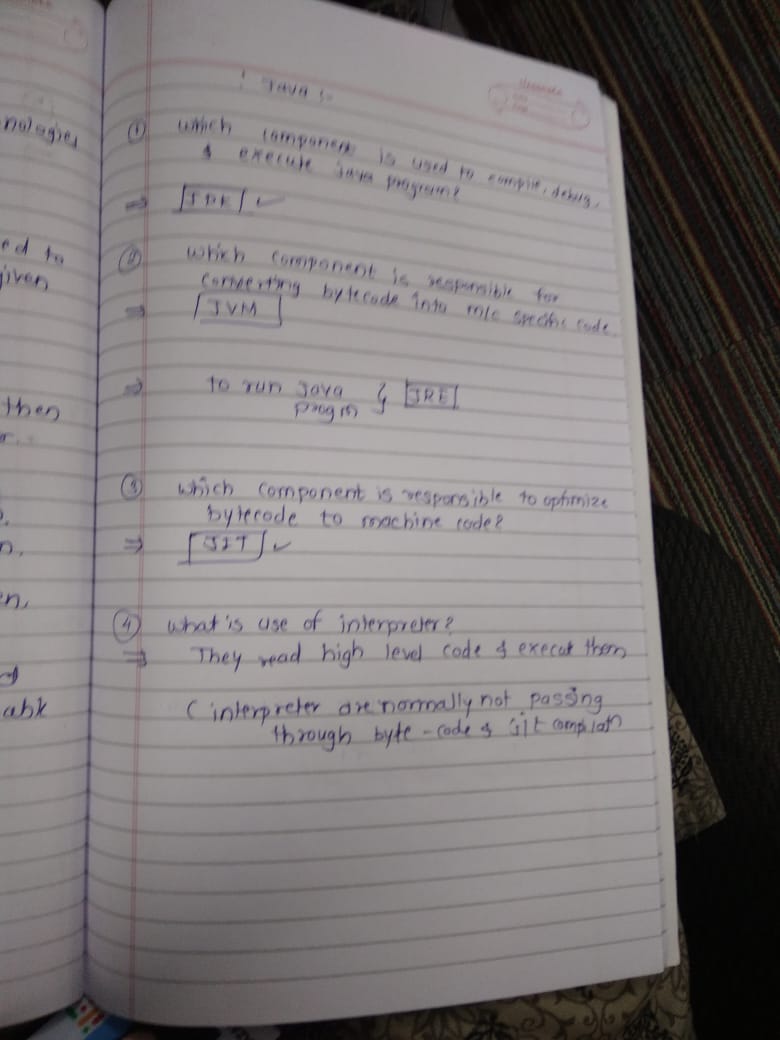 nologies
ed to
given
then
n.
en,
: Java :-
① which component is used to compile, debug,
& execute java program?
⇒ JDK ✓
② which component is responsible for
converting bytecode into m/c specific code
⇒ JVM
⇒ to run Java } JRE
progm
③ which component is responsible to optimize
bytecode to machine code?
⇒ JIT ✓
④ what is use of interpreter?
⇒ They read high level code & execut them
( interpreter are normally not passing
through byte-code & jit